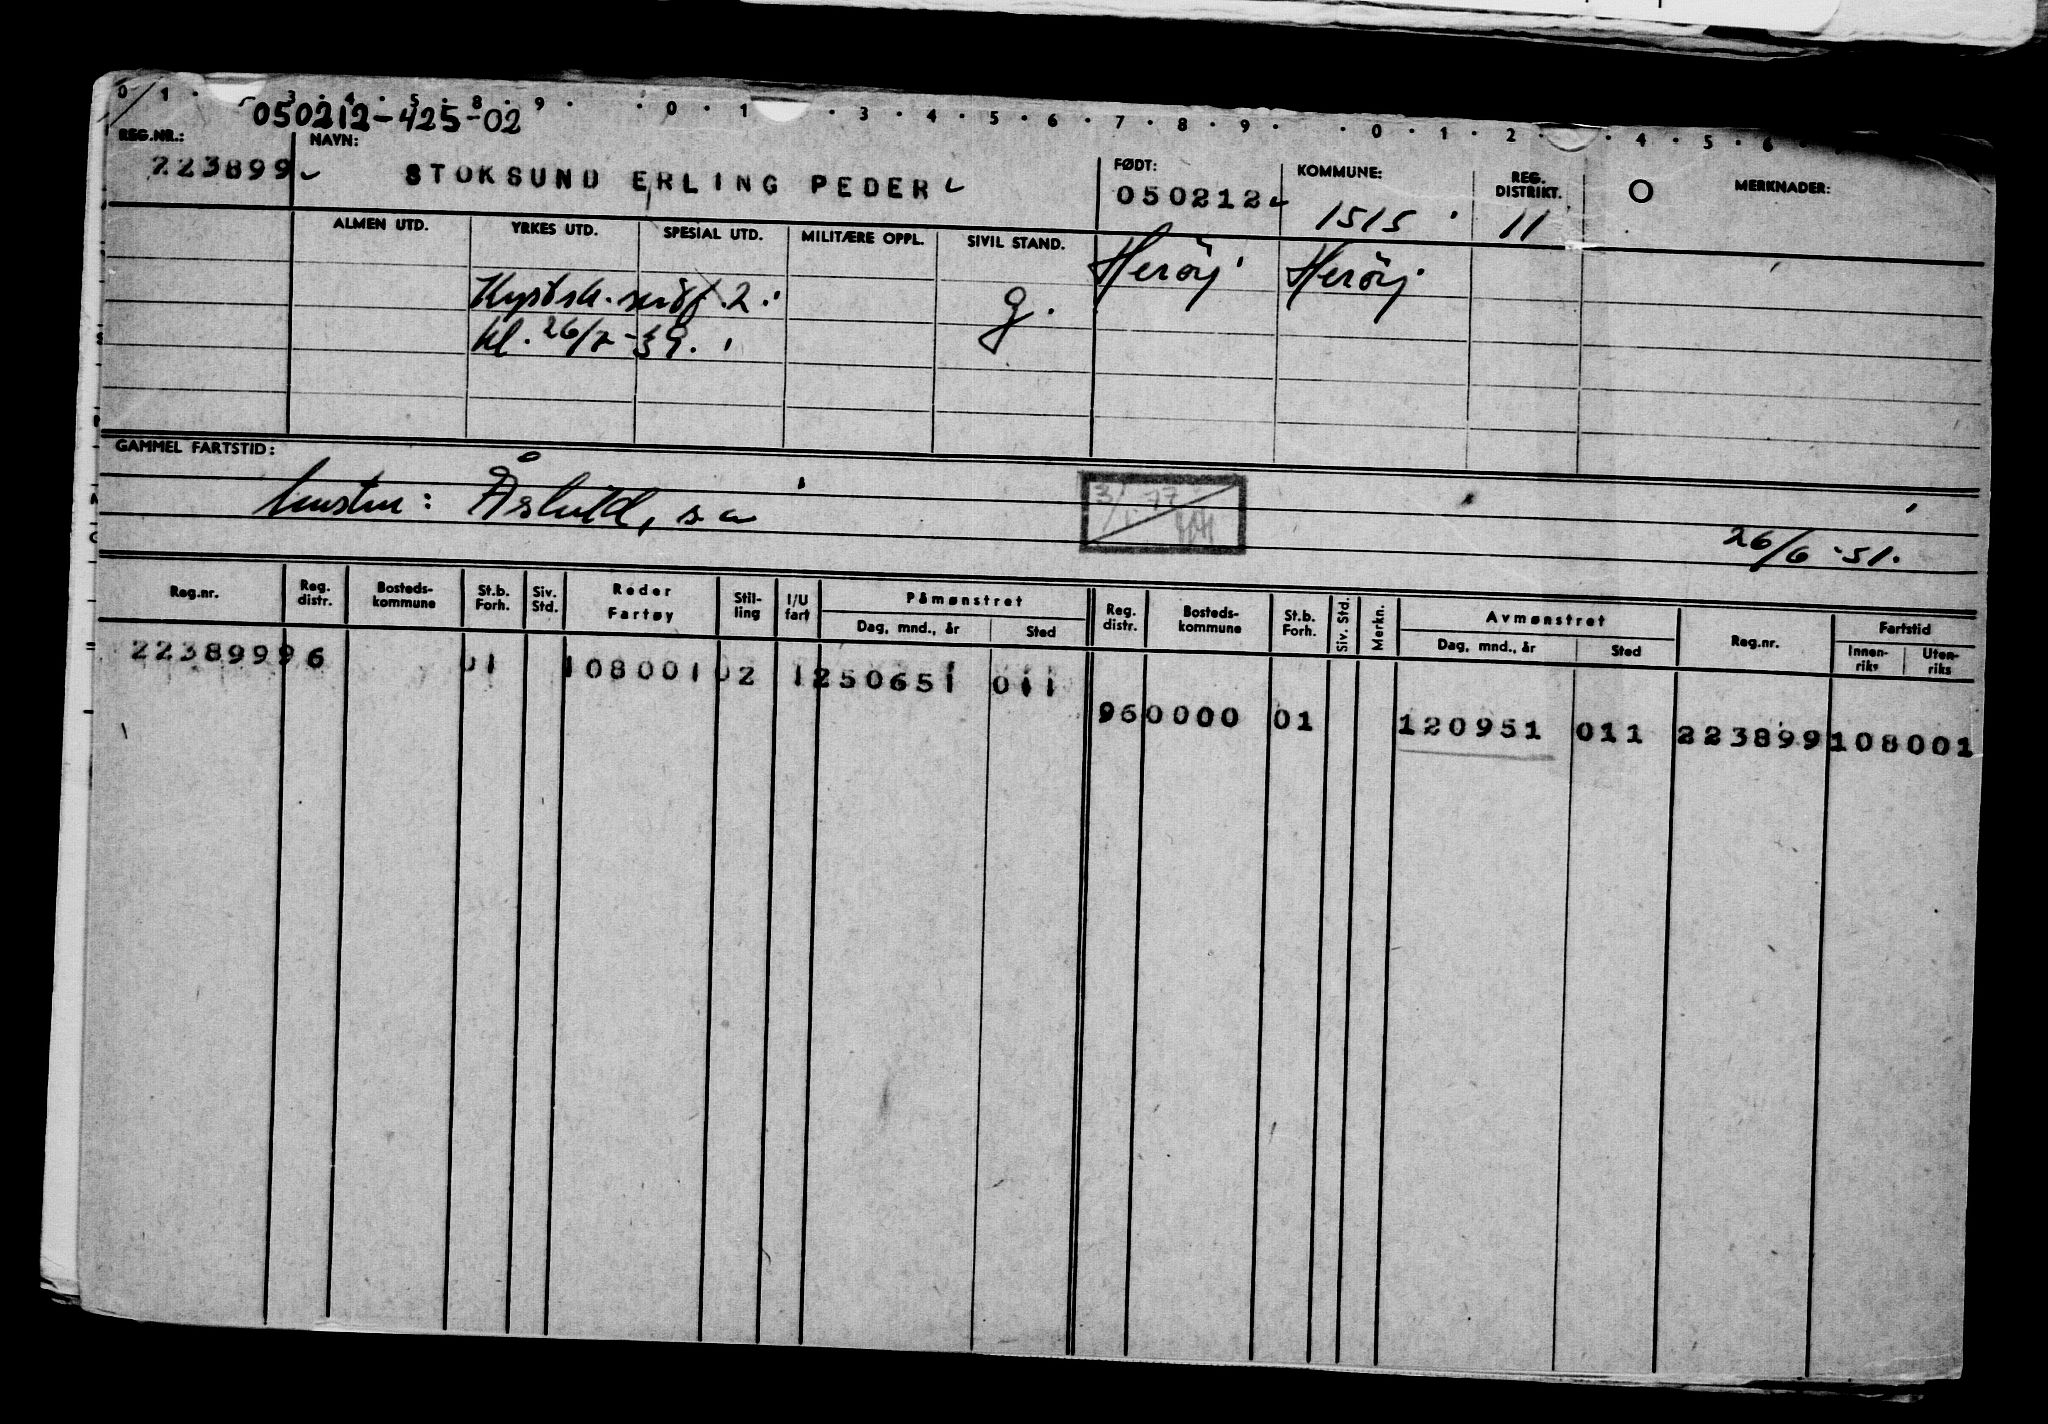 0 1 · 3 · 4 · 5 · 8 · 9 · · 0 · 1 · · 3 · 4 · 5 · 6 · 7 · 8 · 9 · · 0 · 1 · 2 · · 4 · 5 · 6
050212-425-02
REG.NR.: NAVN: FØDT: KOMMUNE: REG. DISTRIKT. O MERKNADER:
223899 STOKSUND ERLING PEDER 050212 1515 11
ALMEN UTD. YRKES UTD. SPESIAL UTD. MILITÆRE OPPL. SIVIL STAND. Herøy Herøy
Kystsk. 2.
kl. 26/7-39. g.
GAMMEL FARTSTID:
Åshild, s a 3/1.77
26/6-51.
Reg.nr. Reg. distr. Bosteds-kommune St.b. Forh. Siv. Std. Reder Fartøy Stil-ling I/U fart Påmønstret Dag, mnd., år Sted Reg. distr. Bosteds-kommune St.b. Forh. Siv. Std. Merkn. Avmønstret Dag, mnd., år Sted Reg.nr. Fartstid Innen-riks Uten-riks
223899 96 01 108001 02 1 250651 011
96 0000 01 120951 011 223899 108001